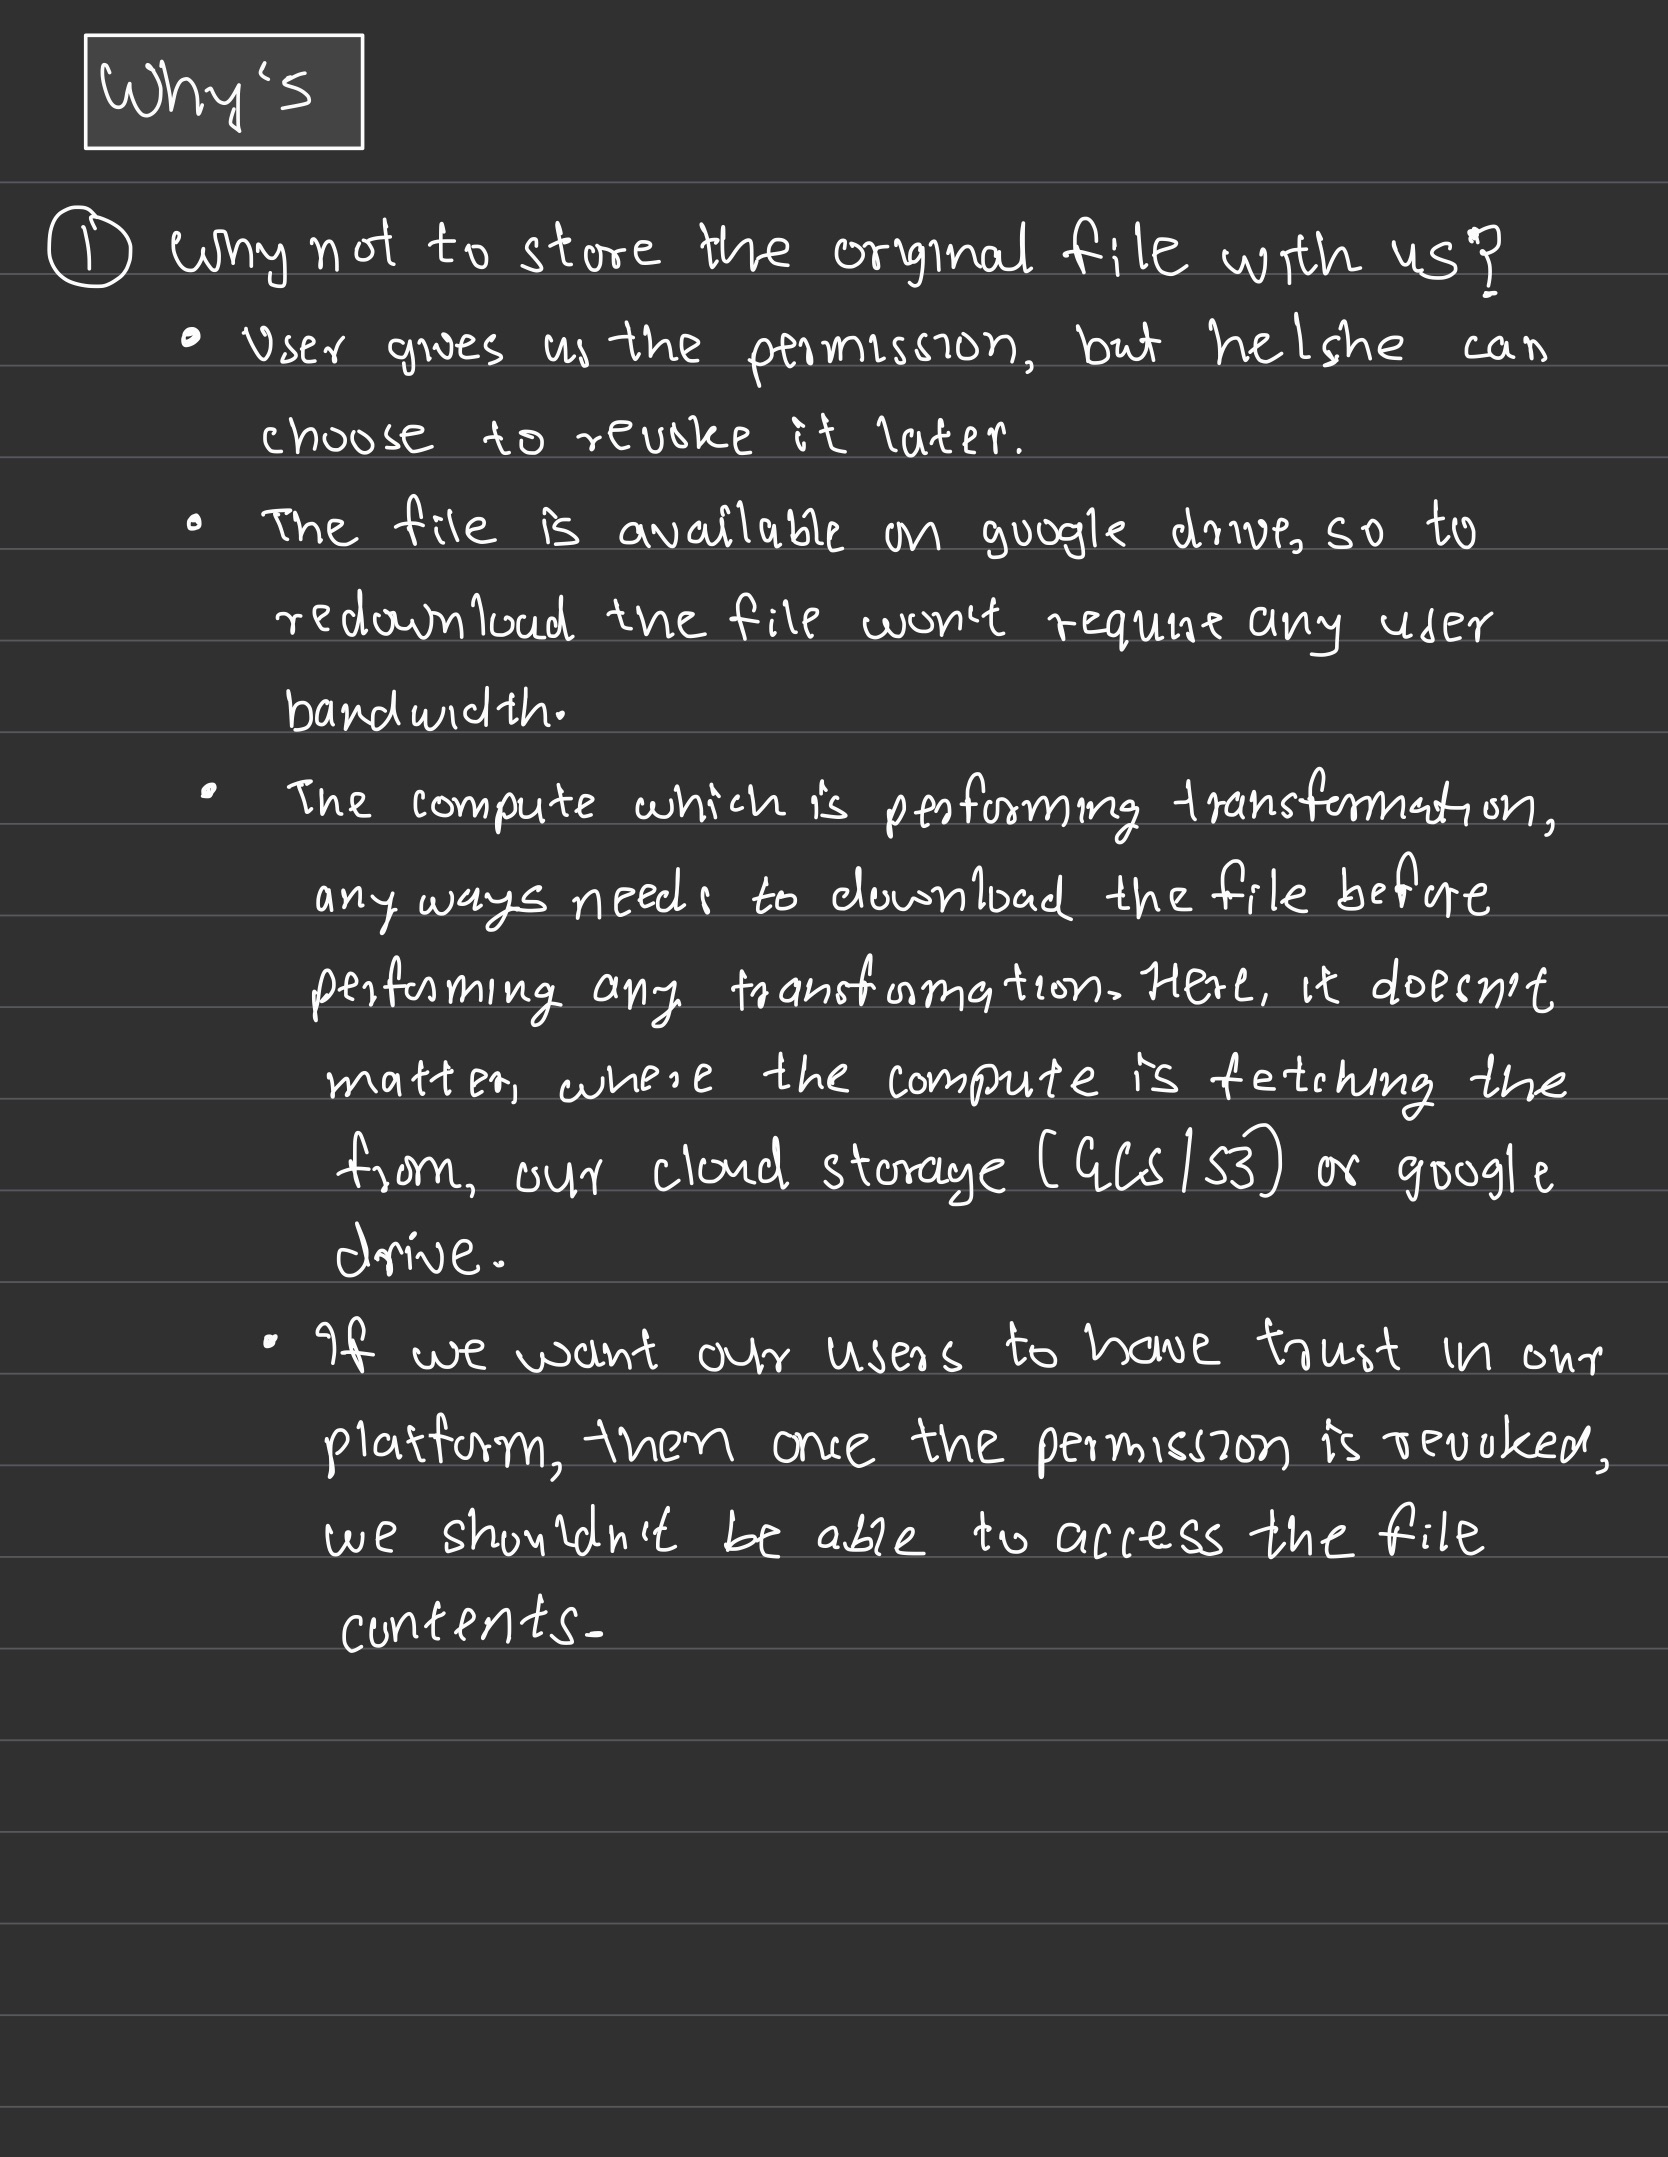 Why's
① Why not to store the original file with us?
• User gives us the permission, but he/she can
choose to revoke it later.
• The file is available on google drive, so to
redownload the file won't require any user
bandwidth.
• The compute which is performing transformation,
any ways needs to download the file before
performing any transformation. Here, it doesn't
matter, where the compute is fetching the
from, our cloud storage (GCS/S3) or google
drive.
• If we want our users to have trust in our
platform, then once the permission is revoked,
we shouldn't be able to access the file
contents.